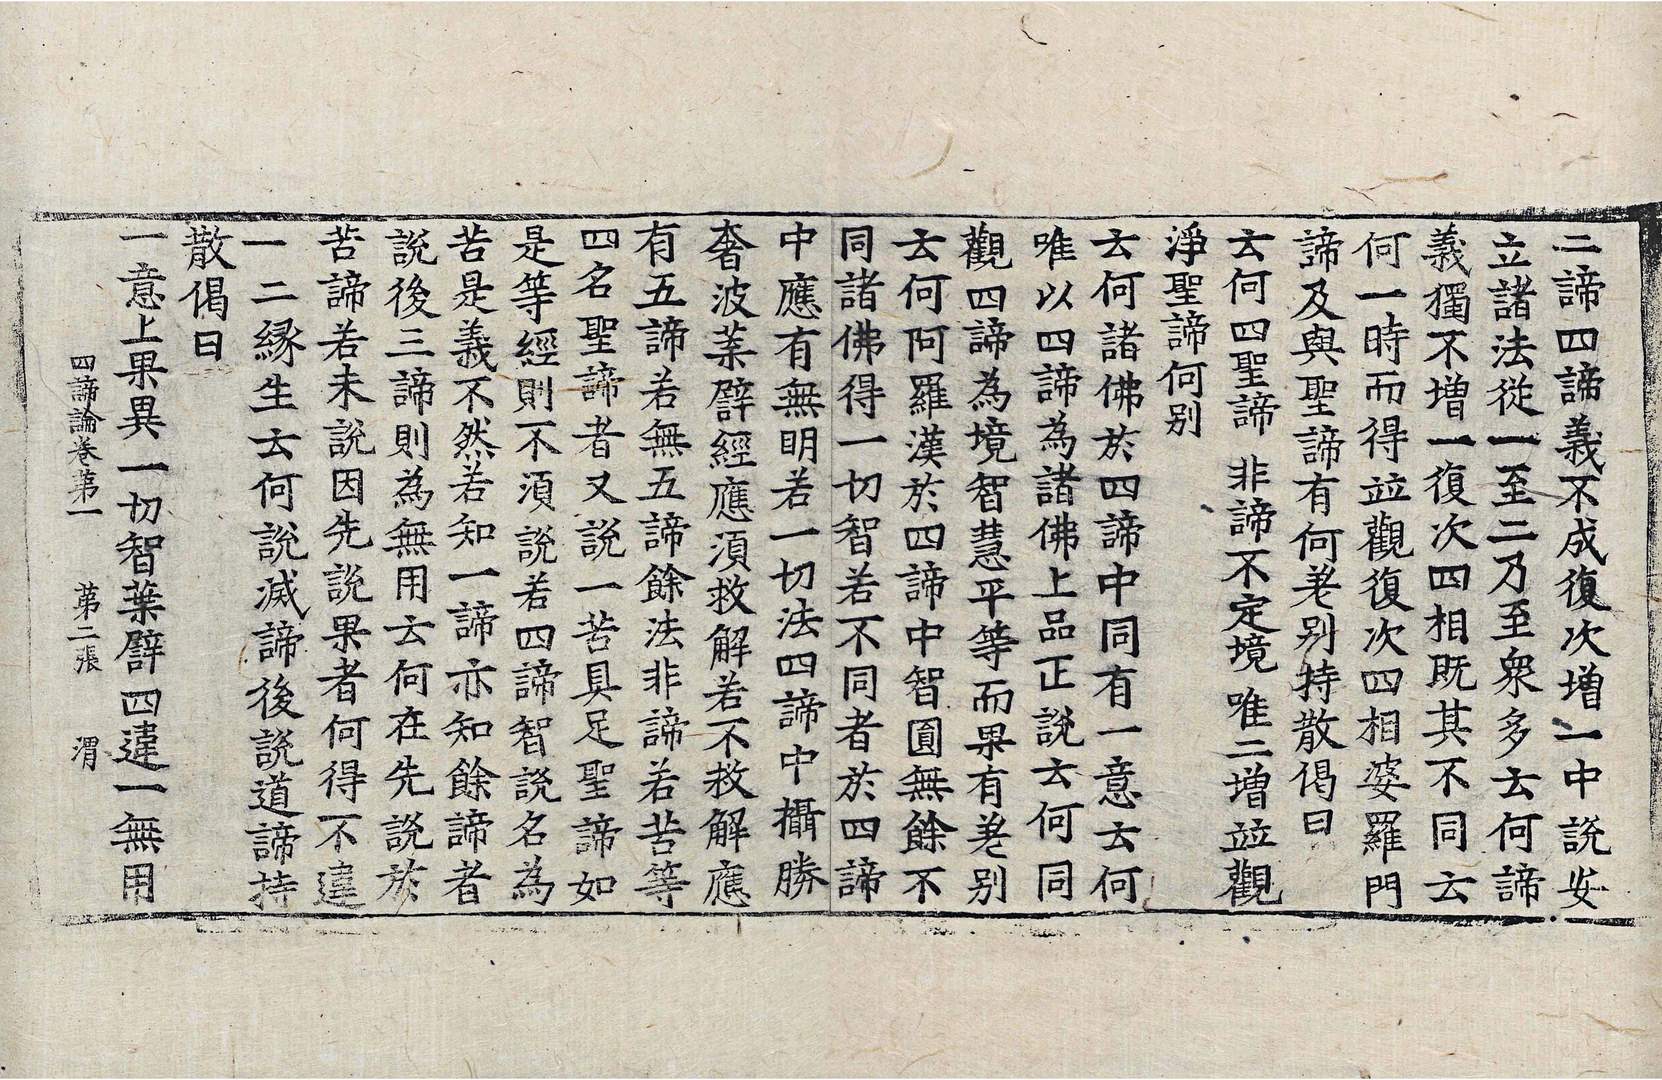 二諦四諦義不成復次增一中說安
立諸法從一至二乃至衆多去何諦
義獨不增一復次四相既其不同云
何一時而得並觀復次四相婆羅門
諦及與聖諦有何差别持散偈曰
云何四聖諦 非諦不定境 唯二增並觀
淨聖諦何别
云何諸佛於四諦中同有一意云何
唯以四諦為諸佛上品正說云何同
觀四諦為境智慧平等而果有差别
云何阿羅漢於四諦中智圓無餘不
同諸佛得一切智若不同者於四諦
中應有無明若一切法四諦中攝勝
奢波葉譬經應須救解若不救解應
有五諦若無五諦餘法非諦若苦等
四名聖諦者又說一苦具足聖諦如
是等經則不須說若四諦智說名為
苦是義不然若知一諦亦知餘諦者
說後三諦則為無用云何在先說於
苦諦若未說因先說果者何得不違
一二緣生云何說滅諦後說道諦持
散偈曰
一意上果異一切智葉譬四違一無用
四諦論卷第一 第二張 渭